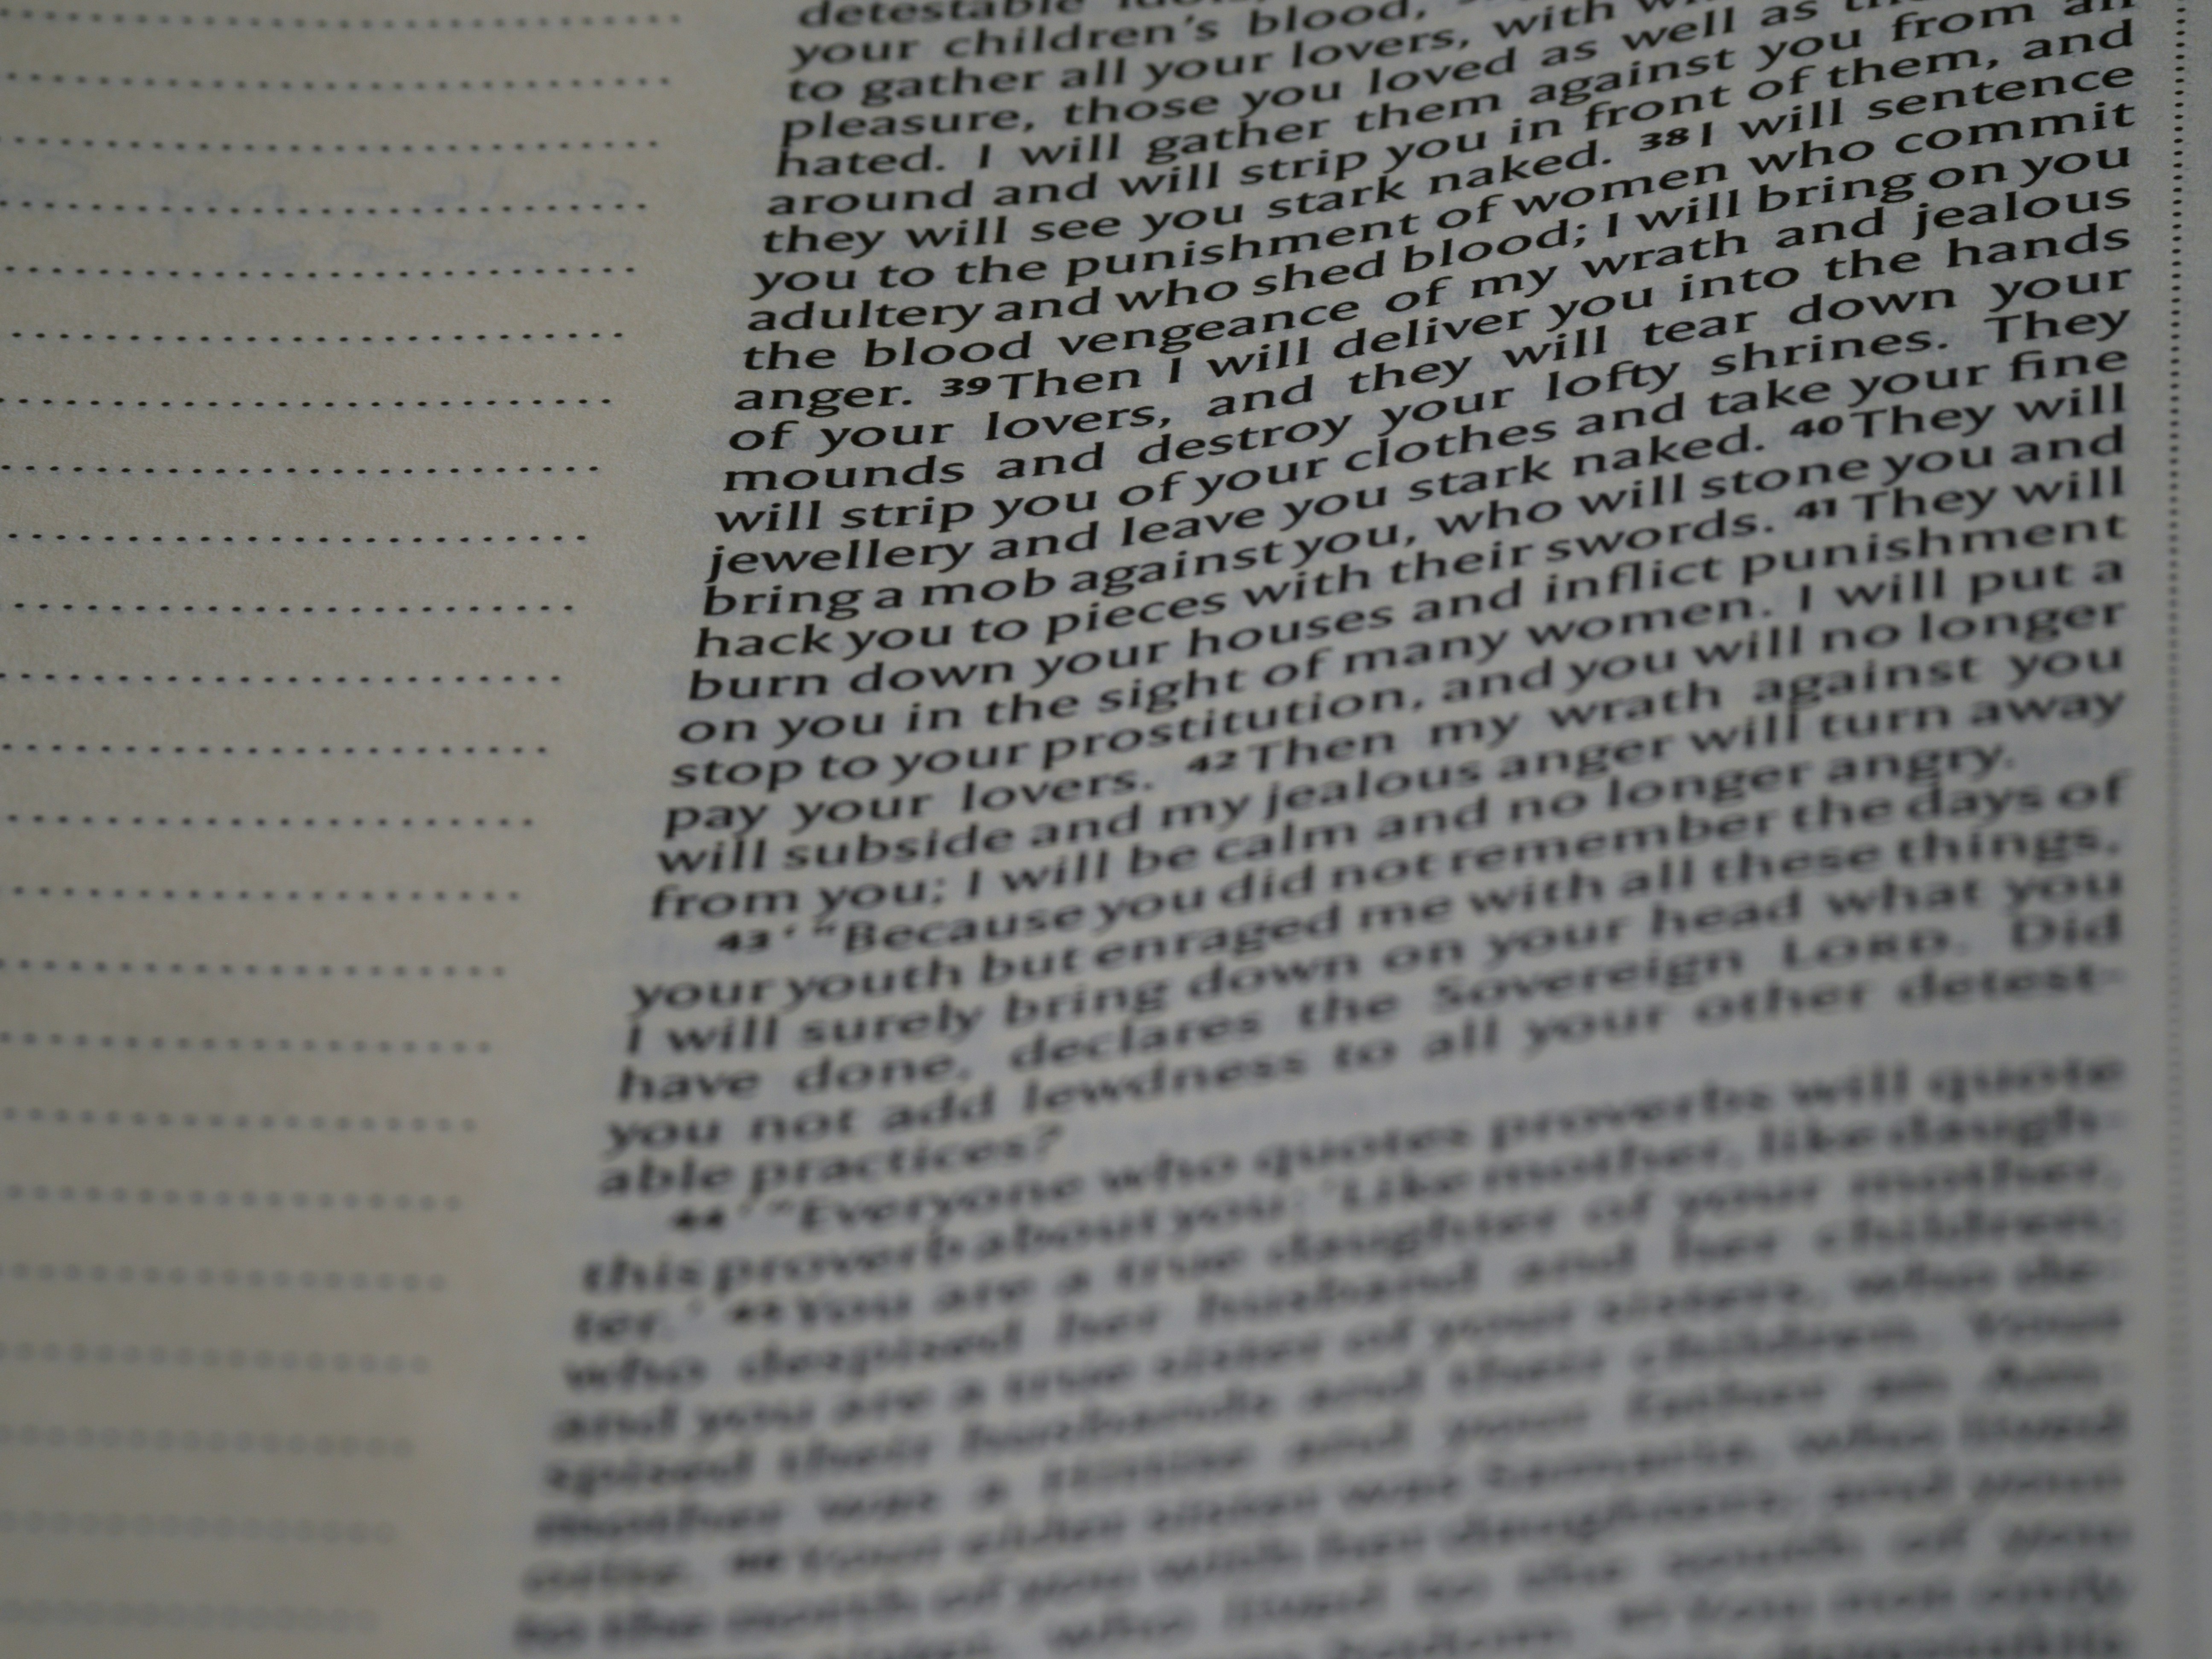 detestable
your children's blood,
to gather all your lovers, with
pleasure, those you loved as well as
hated. I will gather them against you from all
around and will strip you in front of them, and
they will see you stark naked. 38 I will sentence
you to the punishment of women who commit
adultery and who shed blood; I will bring on you
the blood vengeance of my wrath and jealous
anger. 39 Then I will deliver you into the hands
of your lovers, and they will tear down your
mounds and destroy your lofty shrines. They
will strip you of your clothes and take your fine
jewellery and leave you stark naked. 40 They will
bring a mob against you, who will stone you and
hack you to pieces with their swords. 41 They will
burn down your houses and inflict punishment
on you in the sight of many women. I will put a
stop to your prostitution, and you will no longer
pay your lovers. 42 Then my wrath against you
will subside and my jealous anger will turn away
from you; I will be calm and no longer angry.
43 ' "Because you did not remember the days of
your youth but enraged me with all these things,
I will surely bring down on your head what you
have done, declares the Sovereign LORD. Did
you not add lewdness to all your other detest-
able practices?
44 ' "Everyone who quotes proverbs will quote
this proverb about you: 'Like mother, like daugh-
ter.' 45 You are a true daughter of your mother,
who despised her husband and her children;
and you are a true sister of your sisters, who de-
spised their husbands and their children. Your
mother was a Hittite and your father an Am-
orite. 46 Your older sister was Samaria, who lived
to the north of you with her daughters; and your
who lived to the south of you